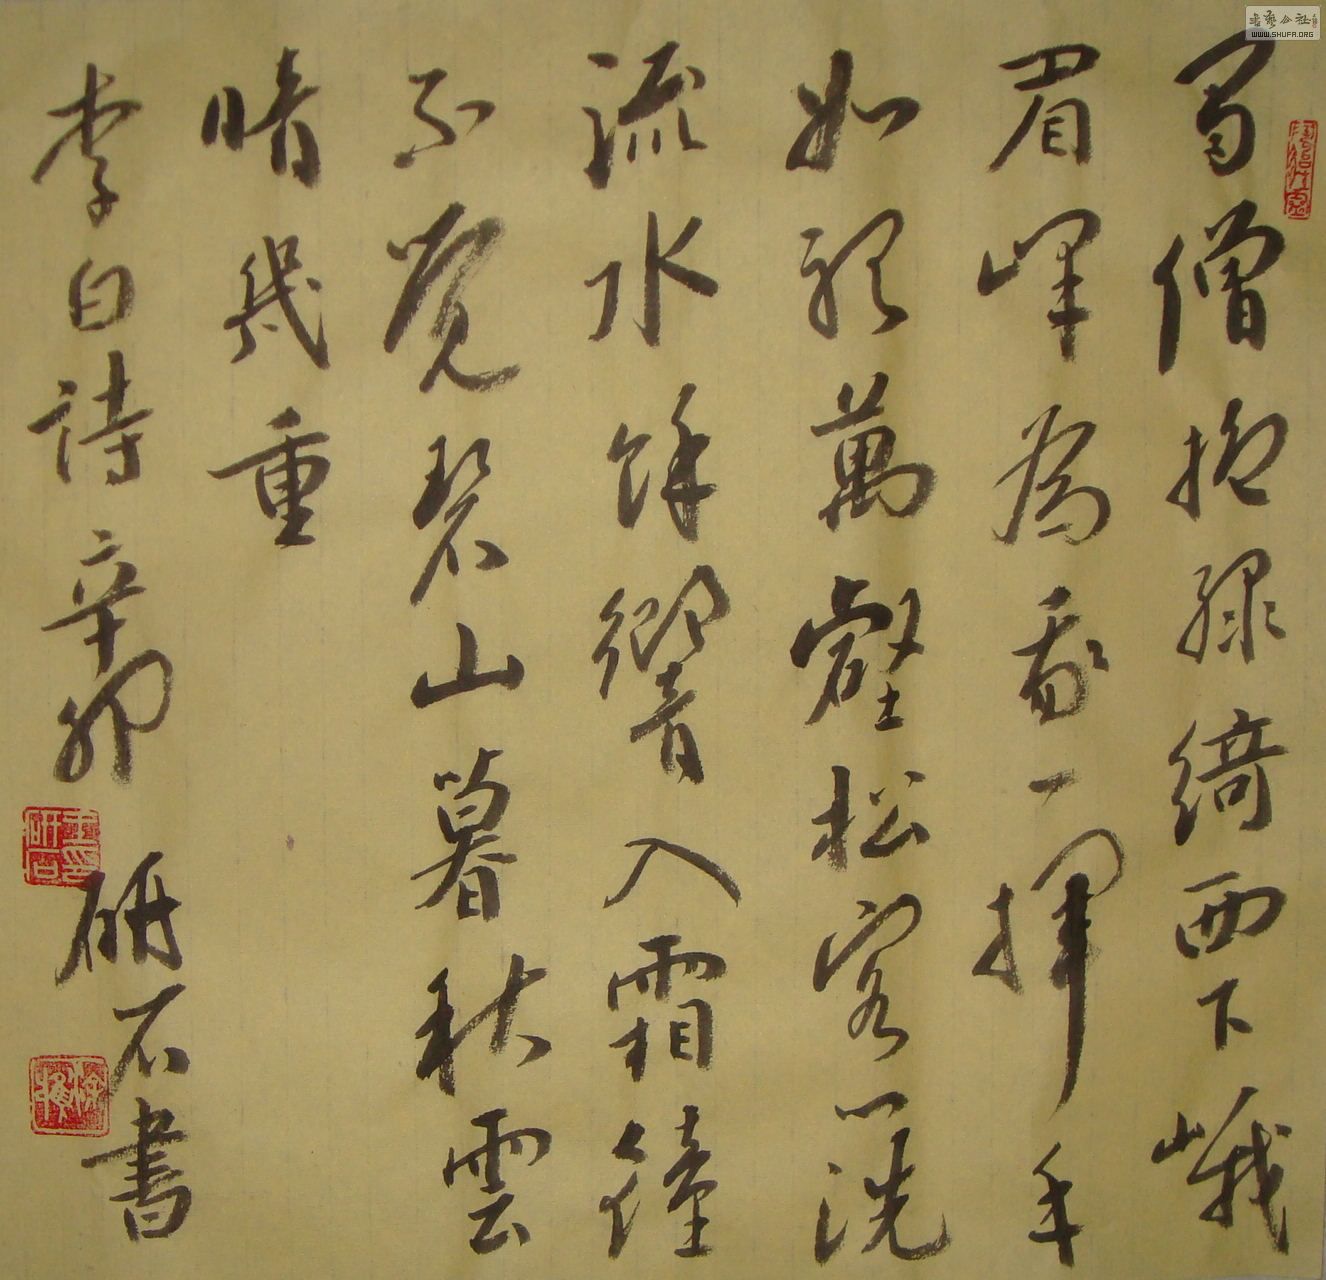 蜀僧抱綠綺西下峨
眉峰為我一揮手
如聽萬壑松客心洗
流水餘響入霜鐘
不覺碧山暮秋雲
暗幾重
李白詩辛卯
研石書
WWW.SHUFA.ORG